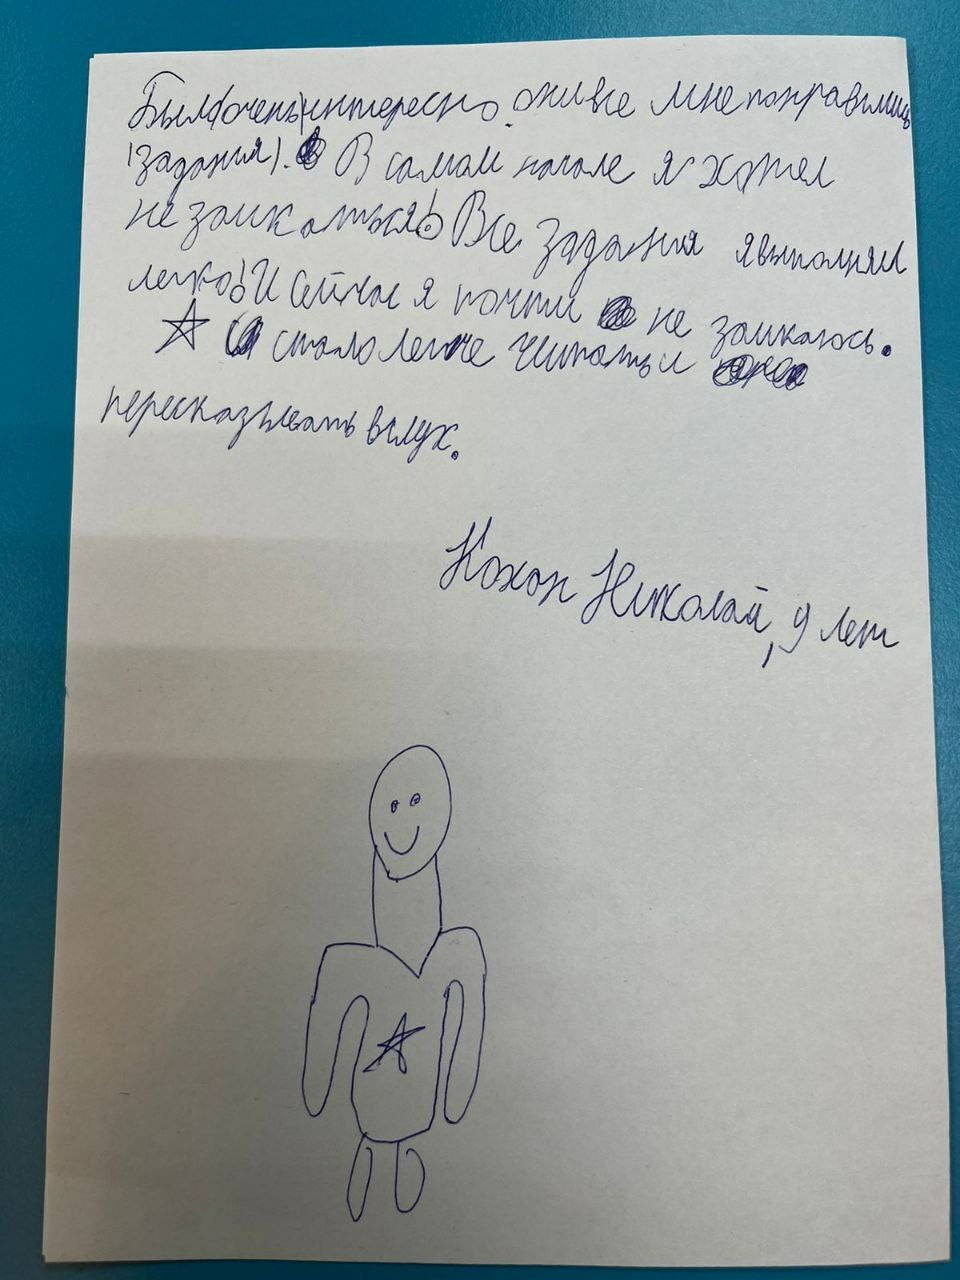 Было (очень) интересно. они все мне понравились
(задания). В самом начале я хотел
не заикаться! Все задания я выполнял
легко! И сейчас я почти не заикаюсь.
стало легче читать и
пересказывать вслух.
Кохан Николай, 9 лет